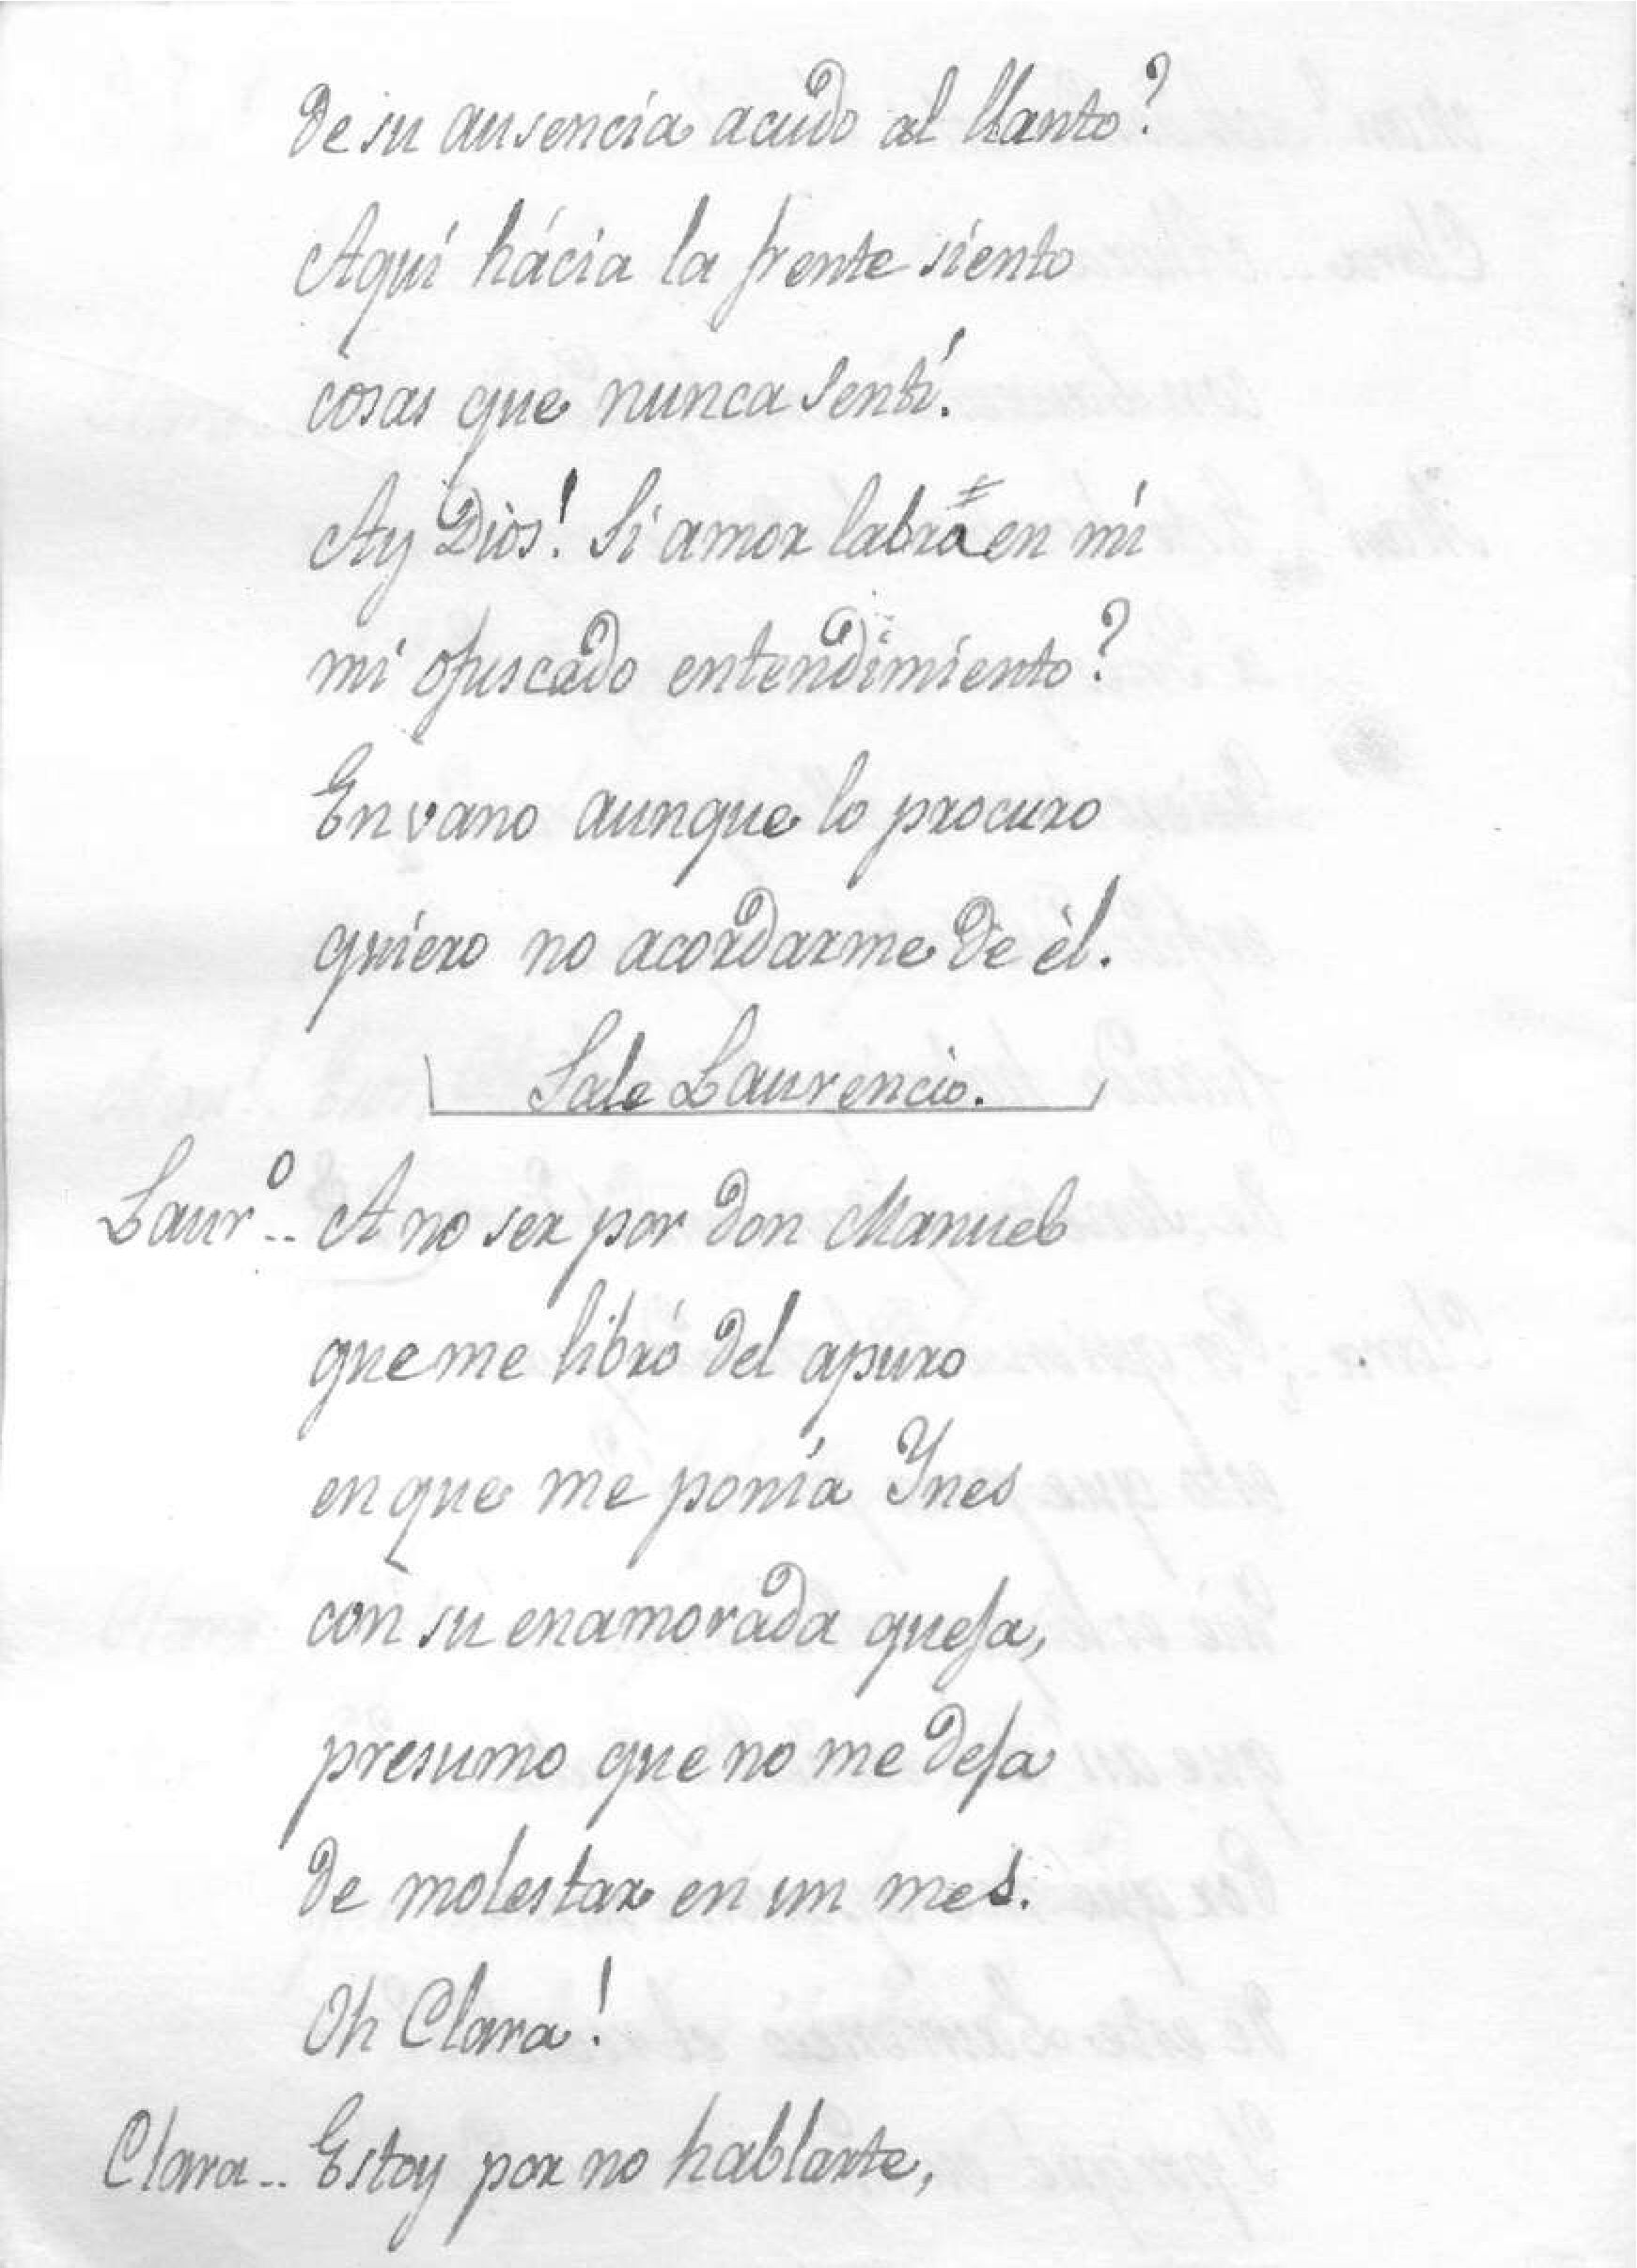 de su ausencia acudo al llanto?
Aquí hácia la frente siento
cosas que nunca sentí.
Ay Dios! Si amor labra en mi
mi ofuscado entendimiento?
En vano aunque lo procuro
quiero no acordarme de èl.
Sale Laurencio.
Laur.º.. A no ser por don Manuel
que me libró del apuro
en que me ponía Ynes
con su enamorada queja,
presumo que no me deja
de molestar en un mes.
Oh Clara!
Clara.. Estoy por no hablarte,